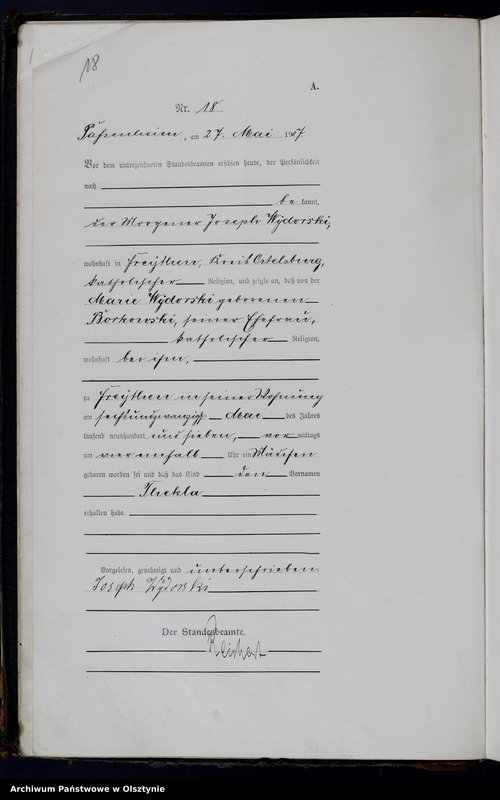 18
A.
Nr. 18
Passenheim, am 27. Mai 1907
Vor dem unterzeichneten Standesbeamten erschien heute, der Persönlichkeit
nach
be kannt,
der Joseph Wydorski,
wohnhaft in Kreis Ortelsburg,
katholischer Religion, und zeigte an, daß von der
Marie Wydorski geborenen
Borkowski, seiner Ehefrau,
katholischer Religion,
wohnhaft bei ihm,
zu in seiner Wohnung
am sechsundzwanzigsten Mai des Jahres
tausend neunhundert und sieben, vor mittags
um viereinhalb Uhr ein Mädchen
geboren worden sei und daß das Kind den Vornamen
Thekla
erhalten habe.
Vorgelesen, genehmigt und unterschrieben.
Joseph Wydorski
Der Standesbeamte.
Archiwum Państwowe w Olsztynie